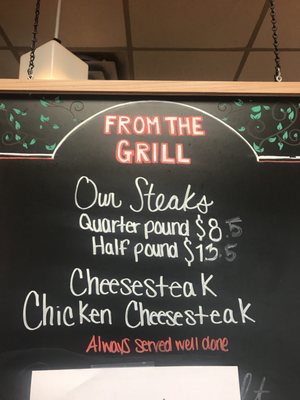 FROM THE
GRILL
Our Steaks
Quarter pound $8.5
Half pound $13.5
Cheesesteak
Chicken Cheesesteak
Always served well done